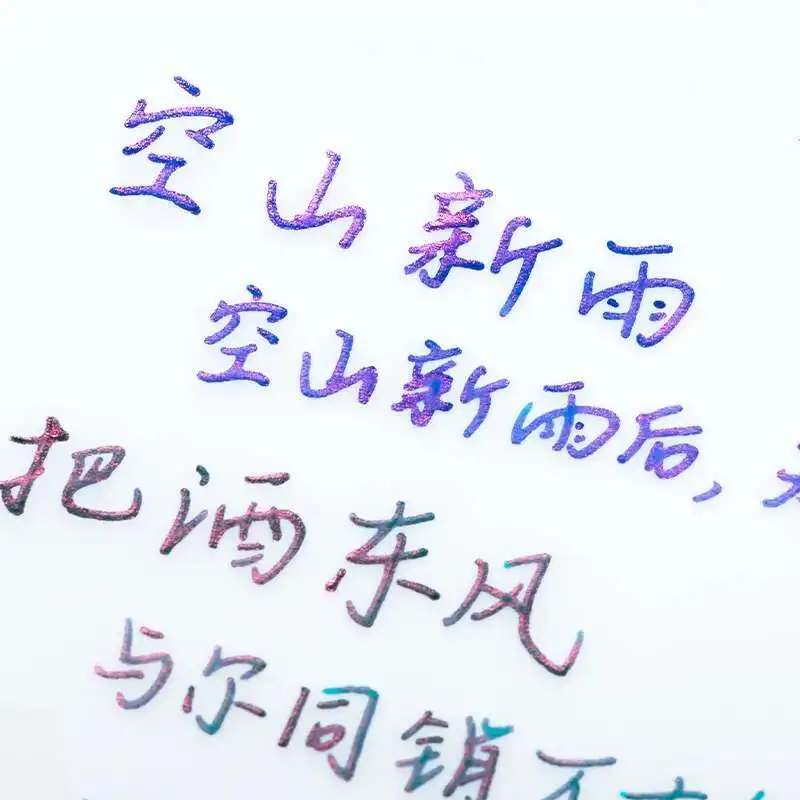 空山新雨
空山新雨后，
把酒东风
与尔同销万古